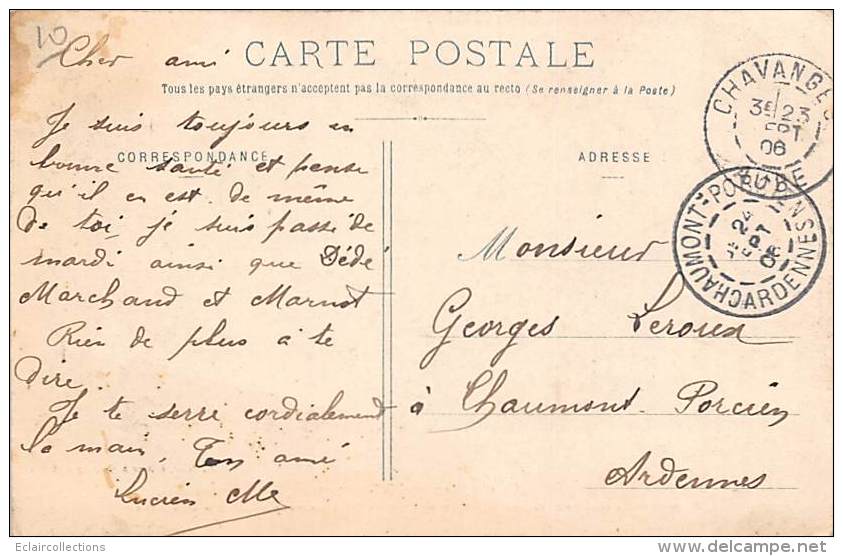 10
Cher ami
CARTE POSTALE
Tous les pays étrangers n'acceptent pas la correspondance au recto (Se renseigner à la Poste)
CORRESPONDANCE
Je suis toujours en
bonne santé et pense
qu'il en est de même
de toi, je suis passé de
mardi ainsi que Dédé
Marchand et Marnot
Rien de plus à te
dire.
Je te serre cordialement
la main, Ton ami
Lucien
ADRESSE
Monsieur
Georges Leroux
à Chaumont-Porcien
Ardennes
CHAVANGES
3E 23
SEPT
06
AUBE
CHAUMONT-PORCIEN
24
SEPT
06
ARDENNES
Eclaircollections
www.delcampe.net